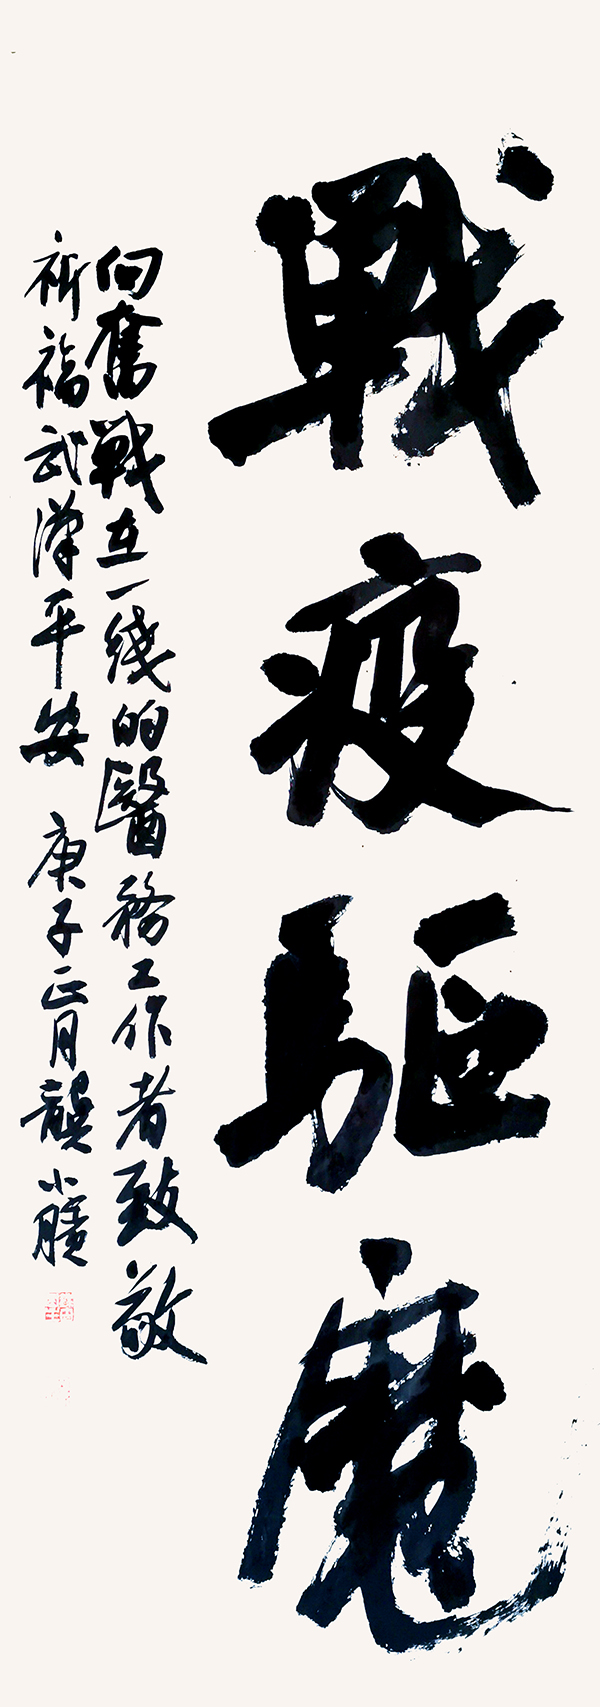 戰疫驅魔
向奮戰在一线的醫務工作者致敬
祈福武漢平安 庚子正月龔小膑